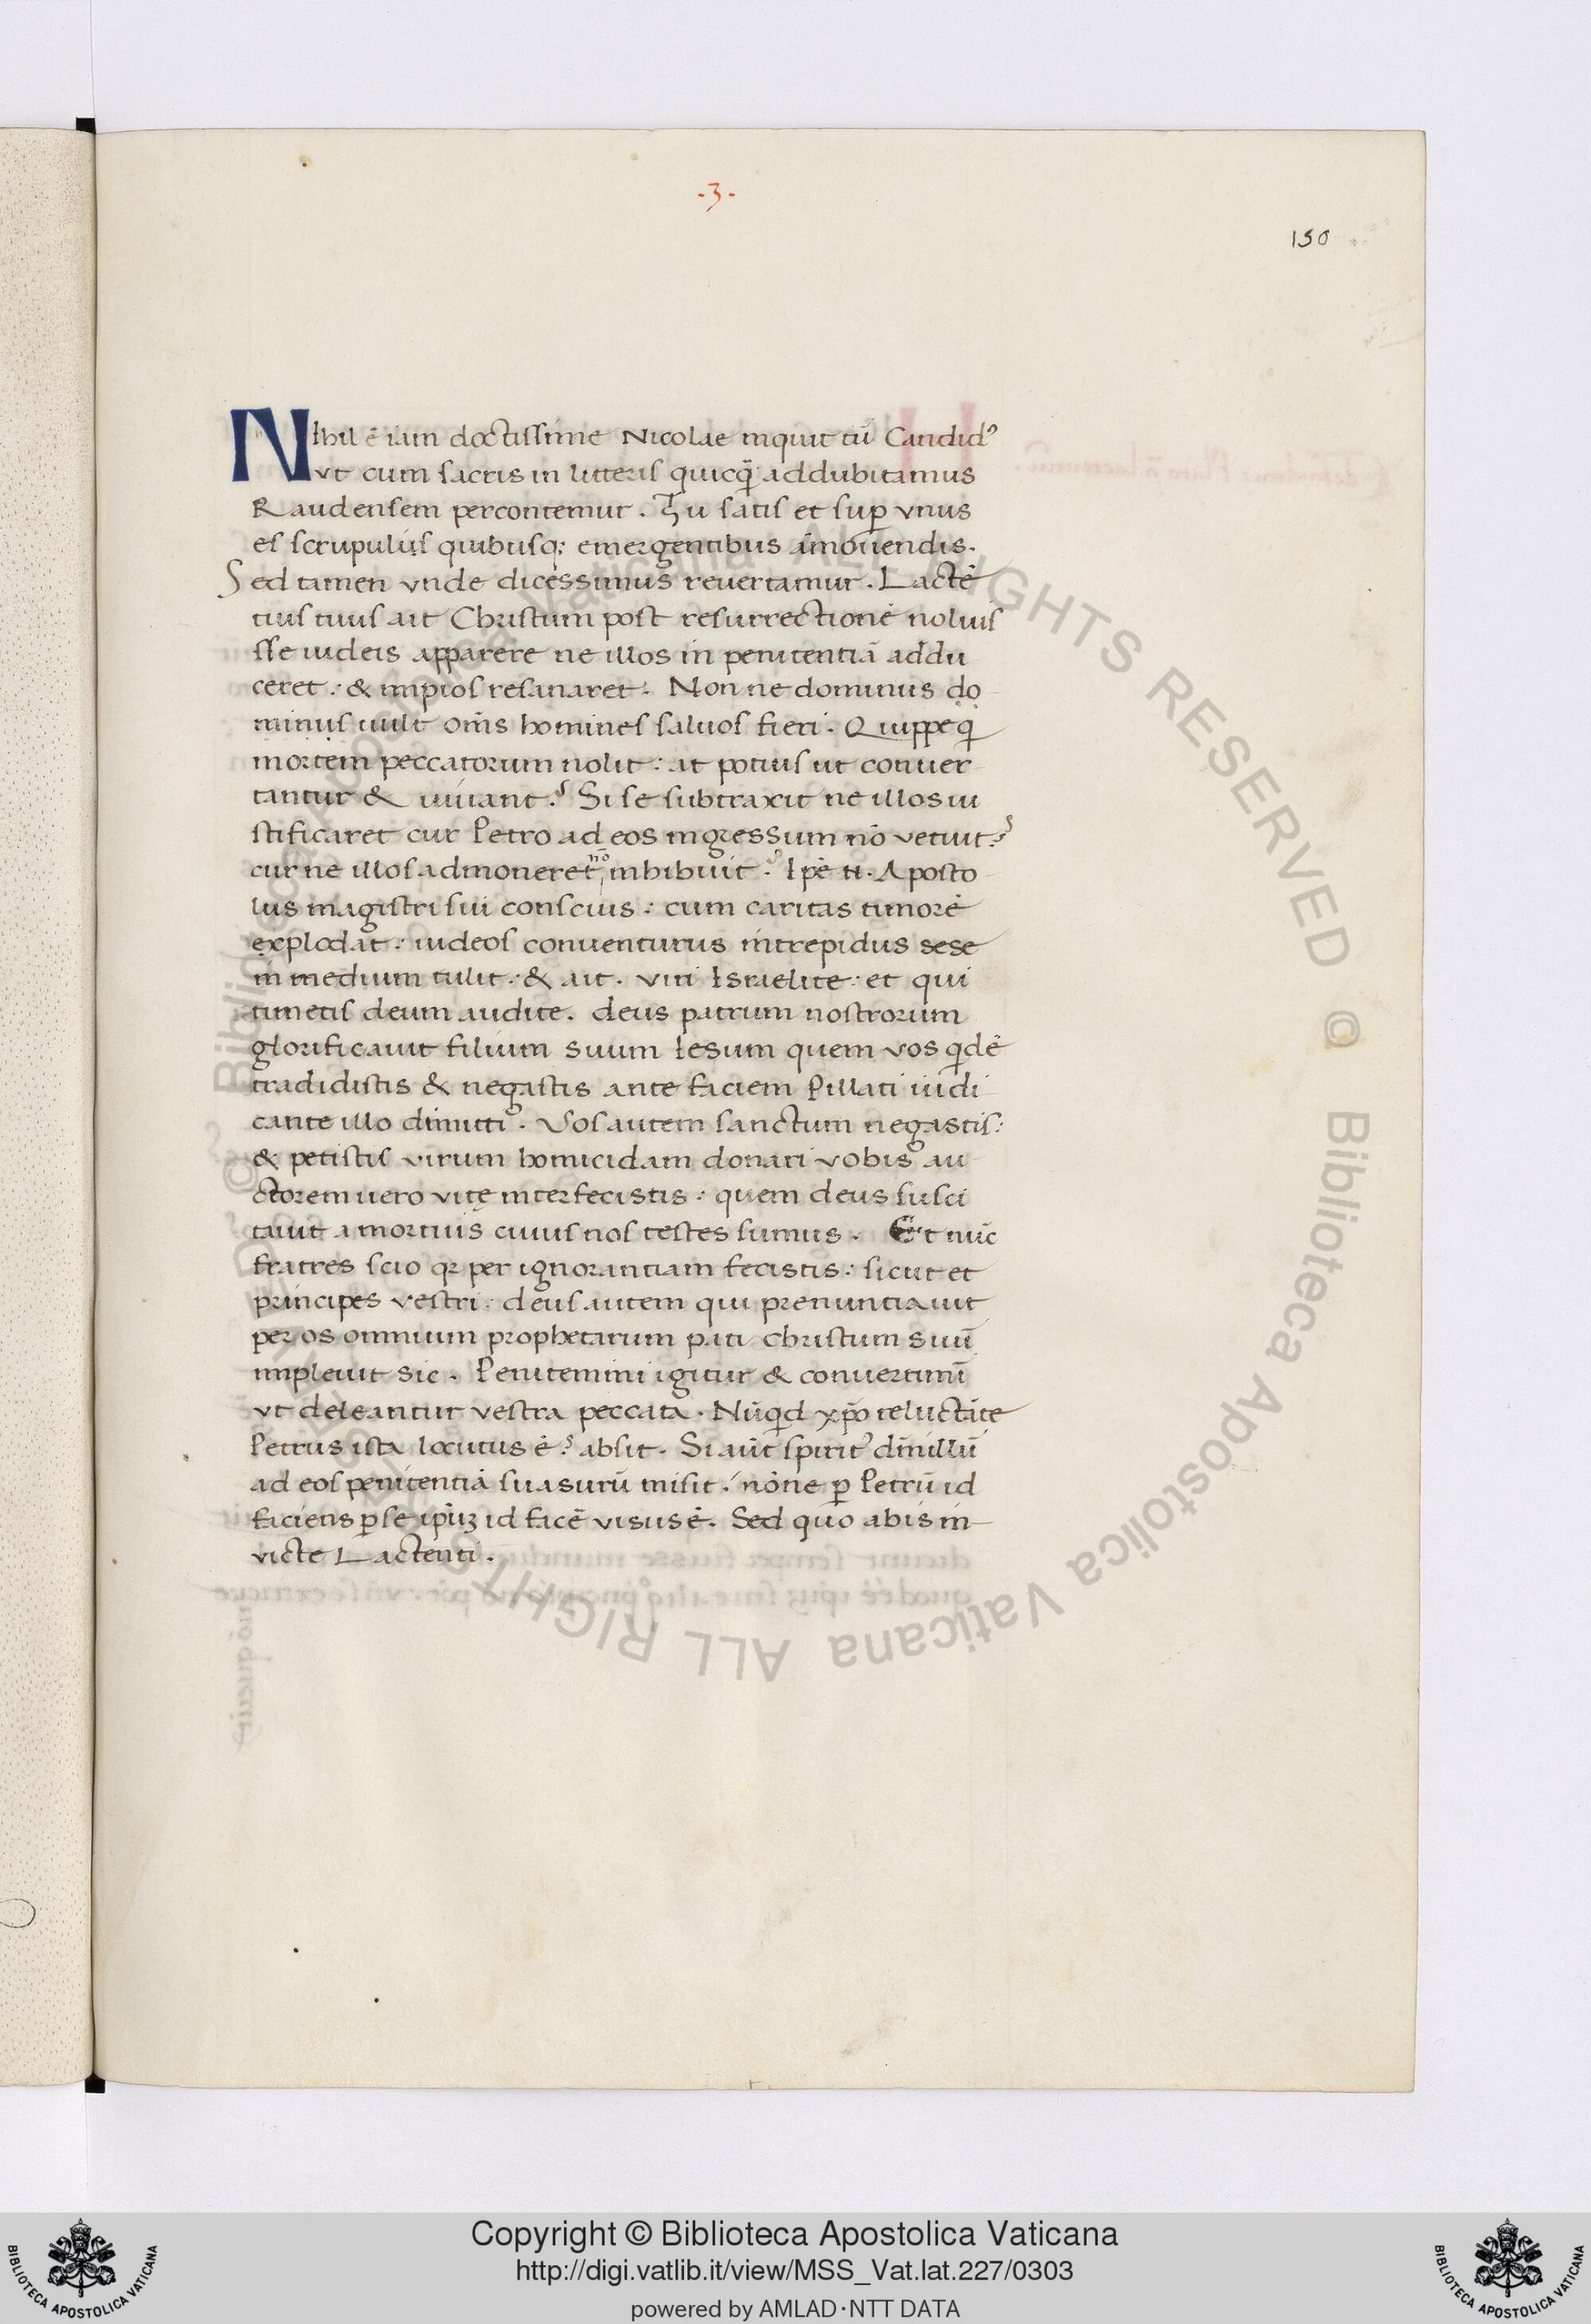 -3-
150
Nihil ē iam doctissime Nicolae inquit tū Candid⁹
vt cum sacris in litteris quicq̄ addubitamus
Raudensem percontemur. Tu satis et suꝑ vnus
es scrupulis quibusq; emergentibus āmouendis.
Sed tamen vnde dicessimus reuertamur. Lactē
tius tuus ait Christum post resurrectionē noluis
sse iudeis apparere ne illos in penitentiā addu
ceret: & impios resanaret. Non ne dominus do
minus uult om̄s homines saluos fieri. Quippe q
mortem peccatorum nolit: at potius ut conuer
tantur & uiuant? Si se subtraxit ne illos iu
stificaret cur Petro ad eos ingressum nō vetuit?
cur ne illos admoneret nō inhibuit? Ipē .n. Aposto
lus magistri sui conscius: cum caritas timorē
explodat: iudeos conuenturus intrepidus sese
in medium tulit: & ait. viri Israelite: et qui
timetis deum audite. deus patrum nostrorum
glorificauit filium suum Iesum quem vos qdē
tradidistis & negastis ante faciem Pillati iudi
cante illo dimitti. Vos autem sanctum negastis:
& petistis virum homicidam donari vobis au
ctorem uero vitę interfecistis: quem deus susci
tauit a mortuis cuius nos testes sumus. Et nūc
fratres scio qꝛ per ignorantiam fecistis: sicut et
principes vestri: deus autem qui prenuntiauit
per os omnium prophetarum pati christum suū
impleuit sic. Penitemini igitur & conuertimī
vt deleantur vestra peccata. Nūqd xp̄o reluctāte
Petrus ista locutus ē? absit. Si aūt spirit⁹ dn̄i illū
ad eos penitentiā suasurū misit: nōne ꝑ Petrū id
faciens ꝑ se ipūꝫ id facē visus ē. Sed quo abis in
victe Lactenti.
© Biblioteca Apostolica Vaticana ALL RIGHTS RESERVED © Biblioteca Apostolica Vaticana ALL RIGHTS RESERVED
BIBLIOTECA APOSTOLICA VATICANA
Copyright © Biblioteca Apostolica Vaticana
http://digi.vatlib.it/view/MSS_Vat.lat.227/0303
powered by AMLAD·NTT DATA
BIBLIOTECA APOSTOLICA VATICANA